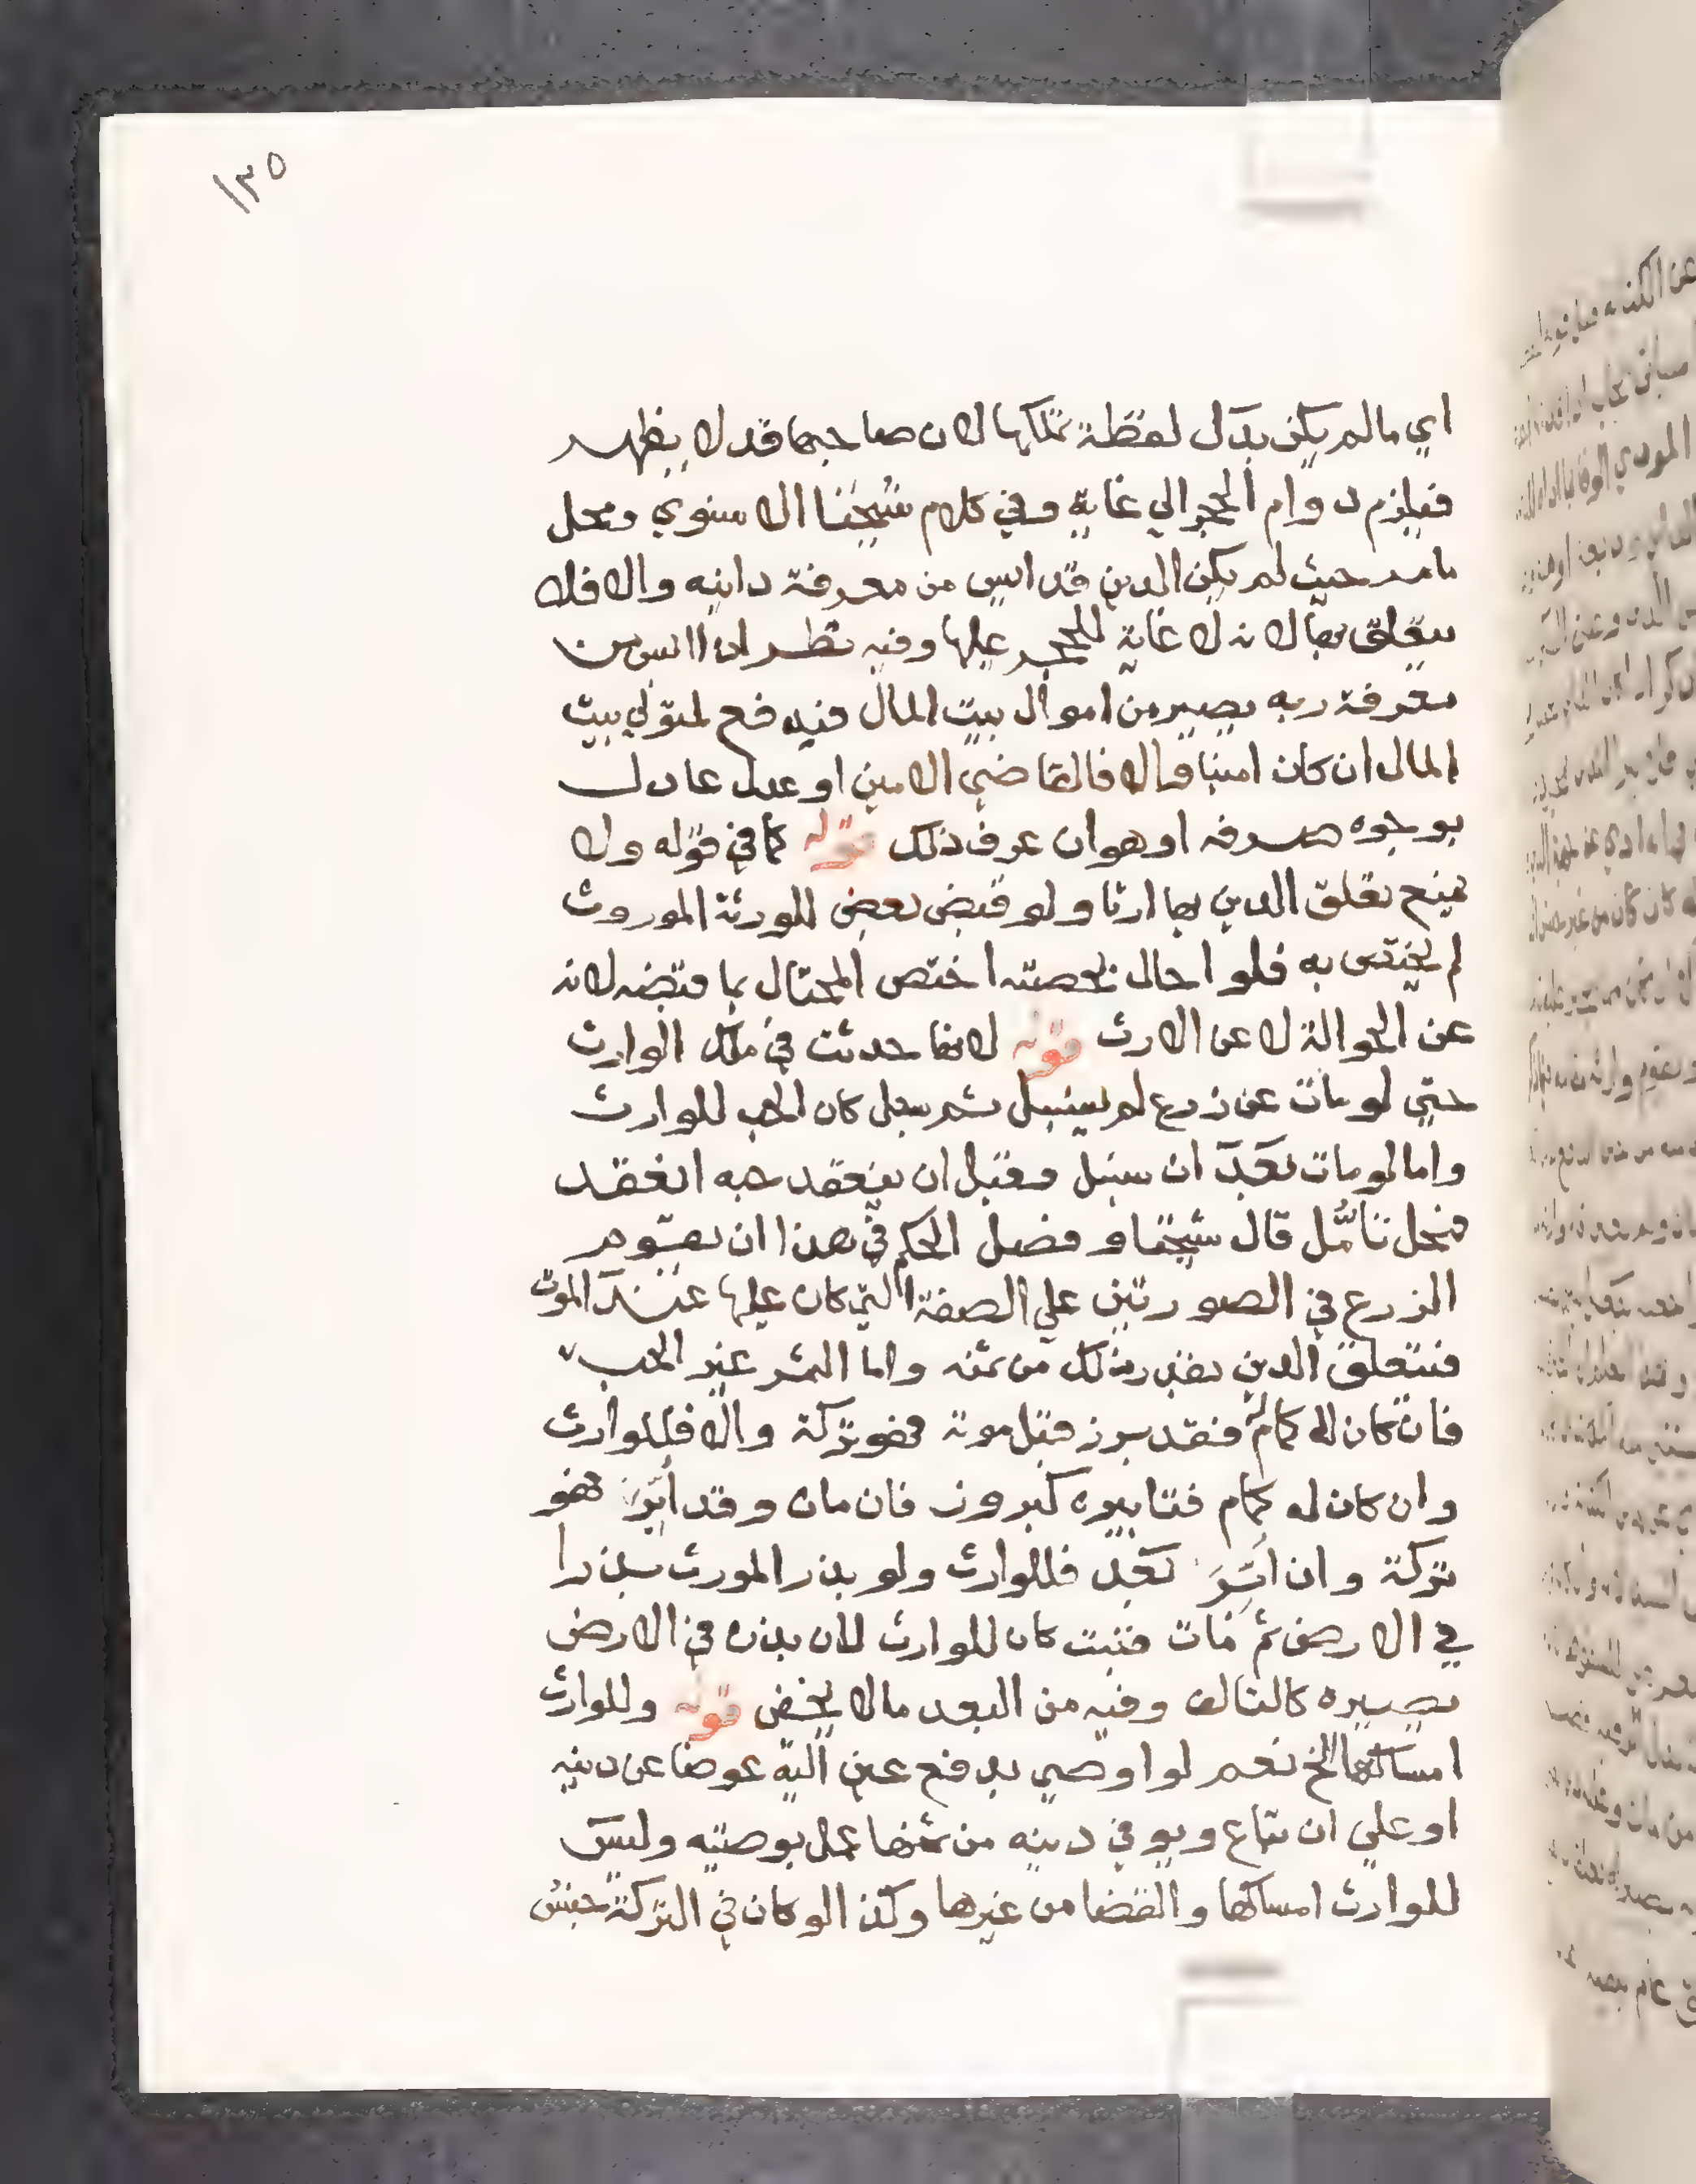 ١٣٥
اي ما لم يكن بدل لقطة تملكها لان صاحبها قد لا يظهر
فيلزم دوام الحجر الي غاية وفي كلام شيخنا الاسنوي ومحل
ما مر حيث لم يكن الدين قد ايس من معرفة داينه والا فلا
يتعلق بها لانه لا غاية للحجر عليها وفيه نظر اذا ايس من
معرفة ربه يصير من اموال بيت المال فيدفع لمتولي بيت
المال ان كان امينا والا فالقاضي الامين او عدل عادل
بوجوه صرفه او هو ان عرف ذلك قوله كما في قوله ولا
يمنع تعلق الدين بها ارثا ولو قبض بعض للورثة الموروث
لم يختص به فلو احال بحصته اختص المحتال بما قبضه لانه
عن الحوالة لا عن الارث قوله لانها حدثت في ملك الوارث
حتي لو مات عن زرع لم يسنبل ثم سنبل كان الحب للوارث
واما لو مات بعد ان سنبل وقبل ان ينعقد حبه انعقد
فمحل تأمل قال شيخنا وفصل الحكم في هذا ان يقوم
الزرع في الصورتين علي الصفة التي كان عليها عند الموت
فيتعلق الدين بقدر ذلك من ثمنه واما الثمر غير الحب
فان كان له كمام فقد برز قبل موته فهو تركة والا فللوارث
وان كان له كمام فتابيره كبروز فان مات وقد ابر فهو
تركة وان ابر بعد فللوارث ولو بذر المورث بذرا
في الارض ثم مات فنبت كان للوارث لان بذره في الارض
يصيره كالتالف وفيه من البعد ما لا يخفى قوله وللوارث
امساكها الخ نعم لو اوصي بدفع عين اليه عوضا عن دينه
او علي ان تباع ويوفي دينه من ثمنها عمل بوصيته وليس
للوارث امساكها والقضا من غيرها وكذا لو كان في التركة جنس